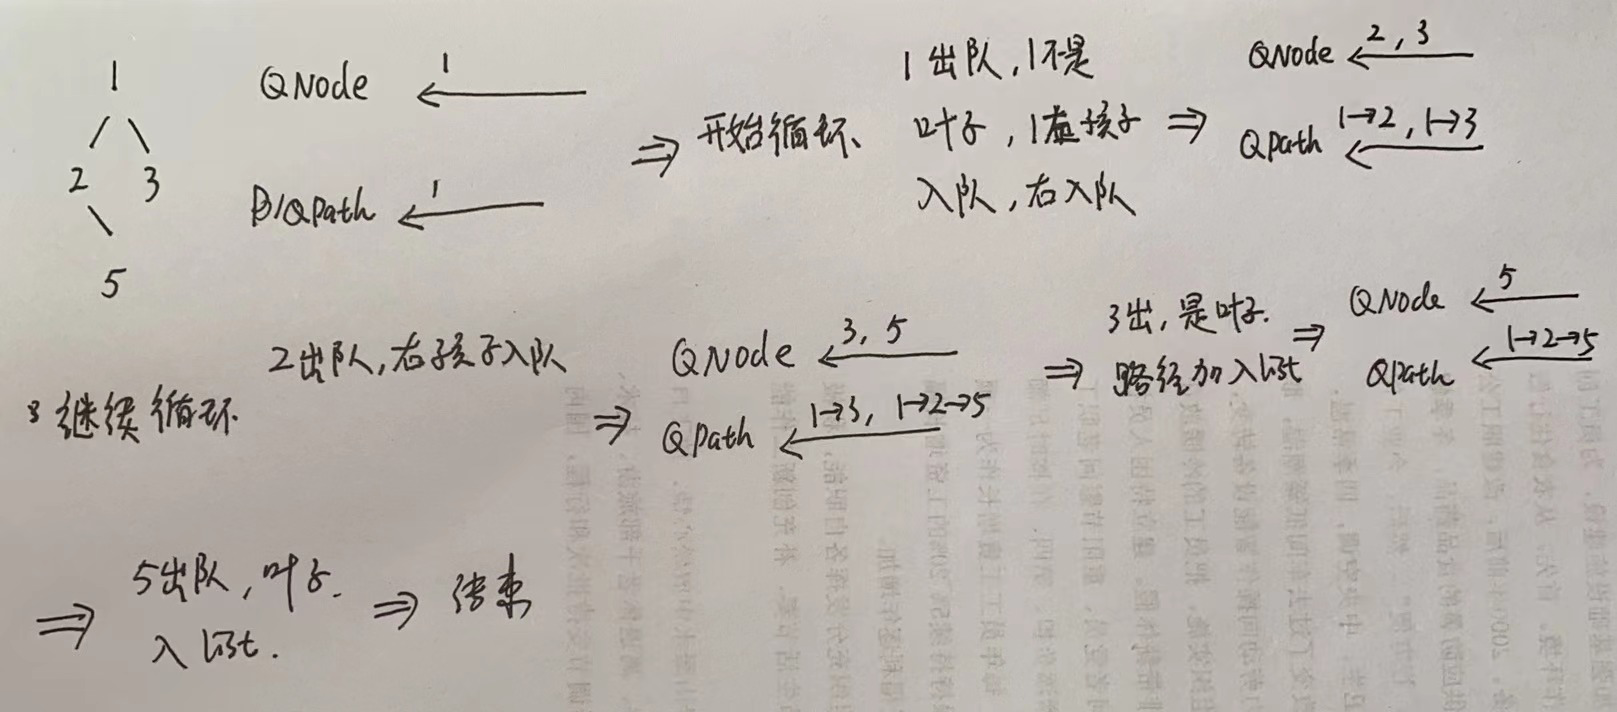 1
2 3
5
QNode 1
QPath 1
⇒ 开始循环、
1出队,1不是
叶子,1左孩子
入队,右入队
⇒ QNode 2,3
QPath 1→2,1→3
继续循环
2出队,右孩子入队
⇒ QNode 3,5
QPath 1→3,1→2→5
⇒ 3出,是叶子.
路径加入list
⇒ QNode 5
QPath 1→2→5
⇒ 5出队,叶子.
入list.
⇒ 结束